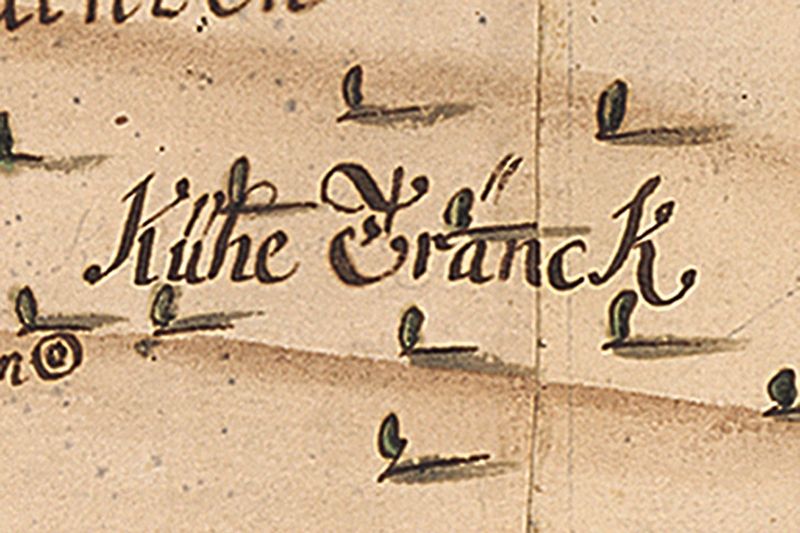 Kühe Tränck